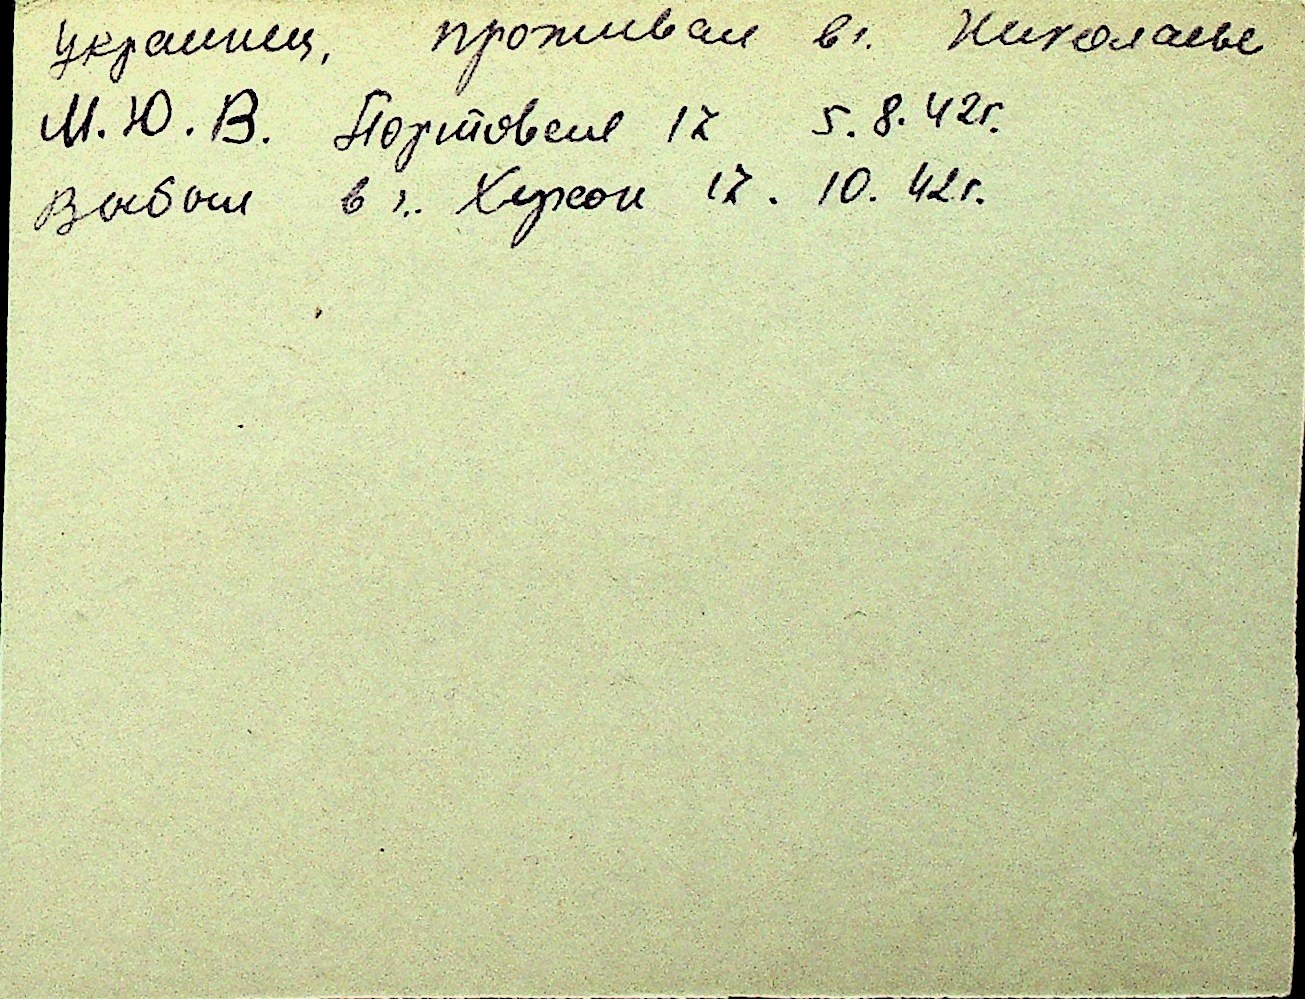 украинец, проживал в г. Николаеве
М.Ю.В. Портовая 17 5.8.42г.
Выбыл в г. Херсон 17. 10. 42г.